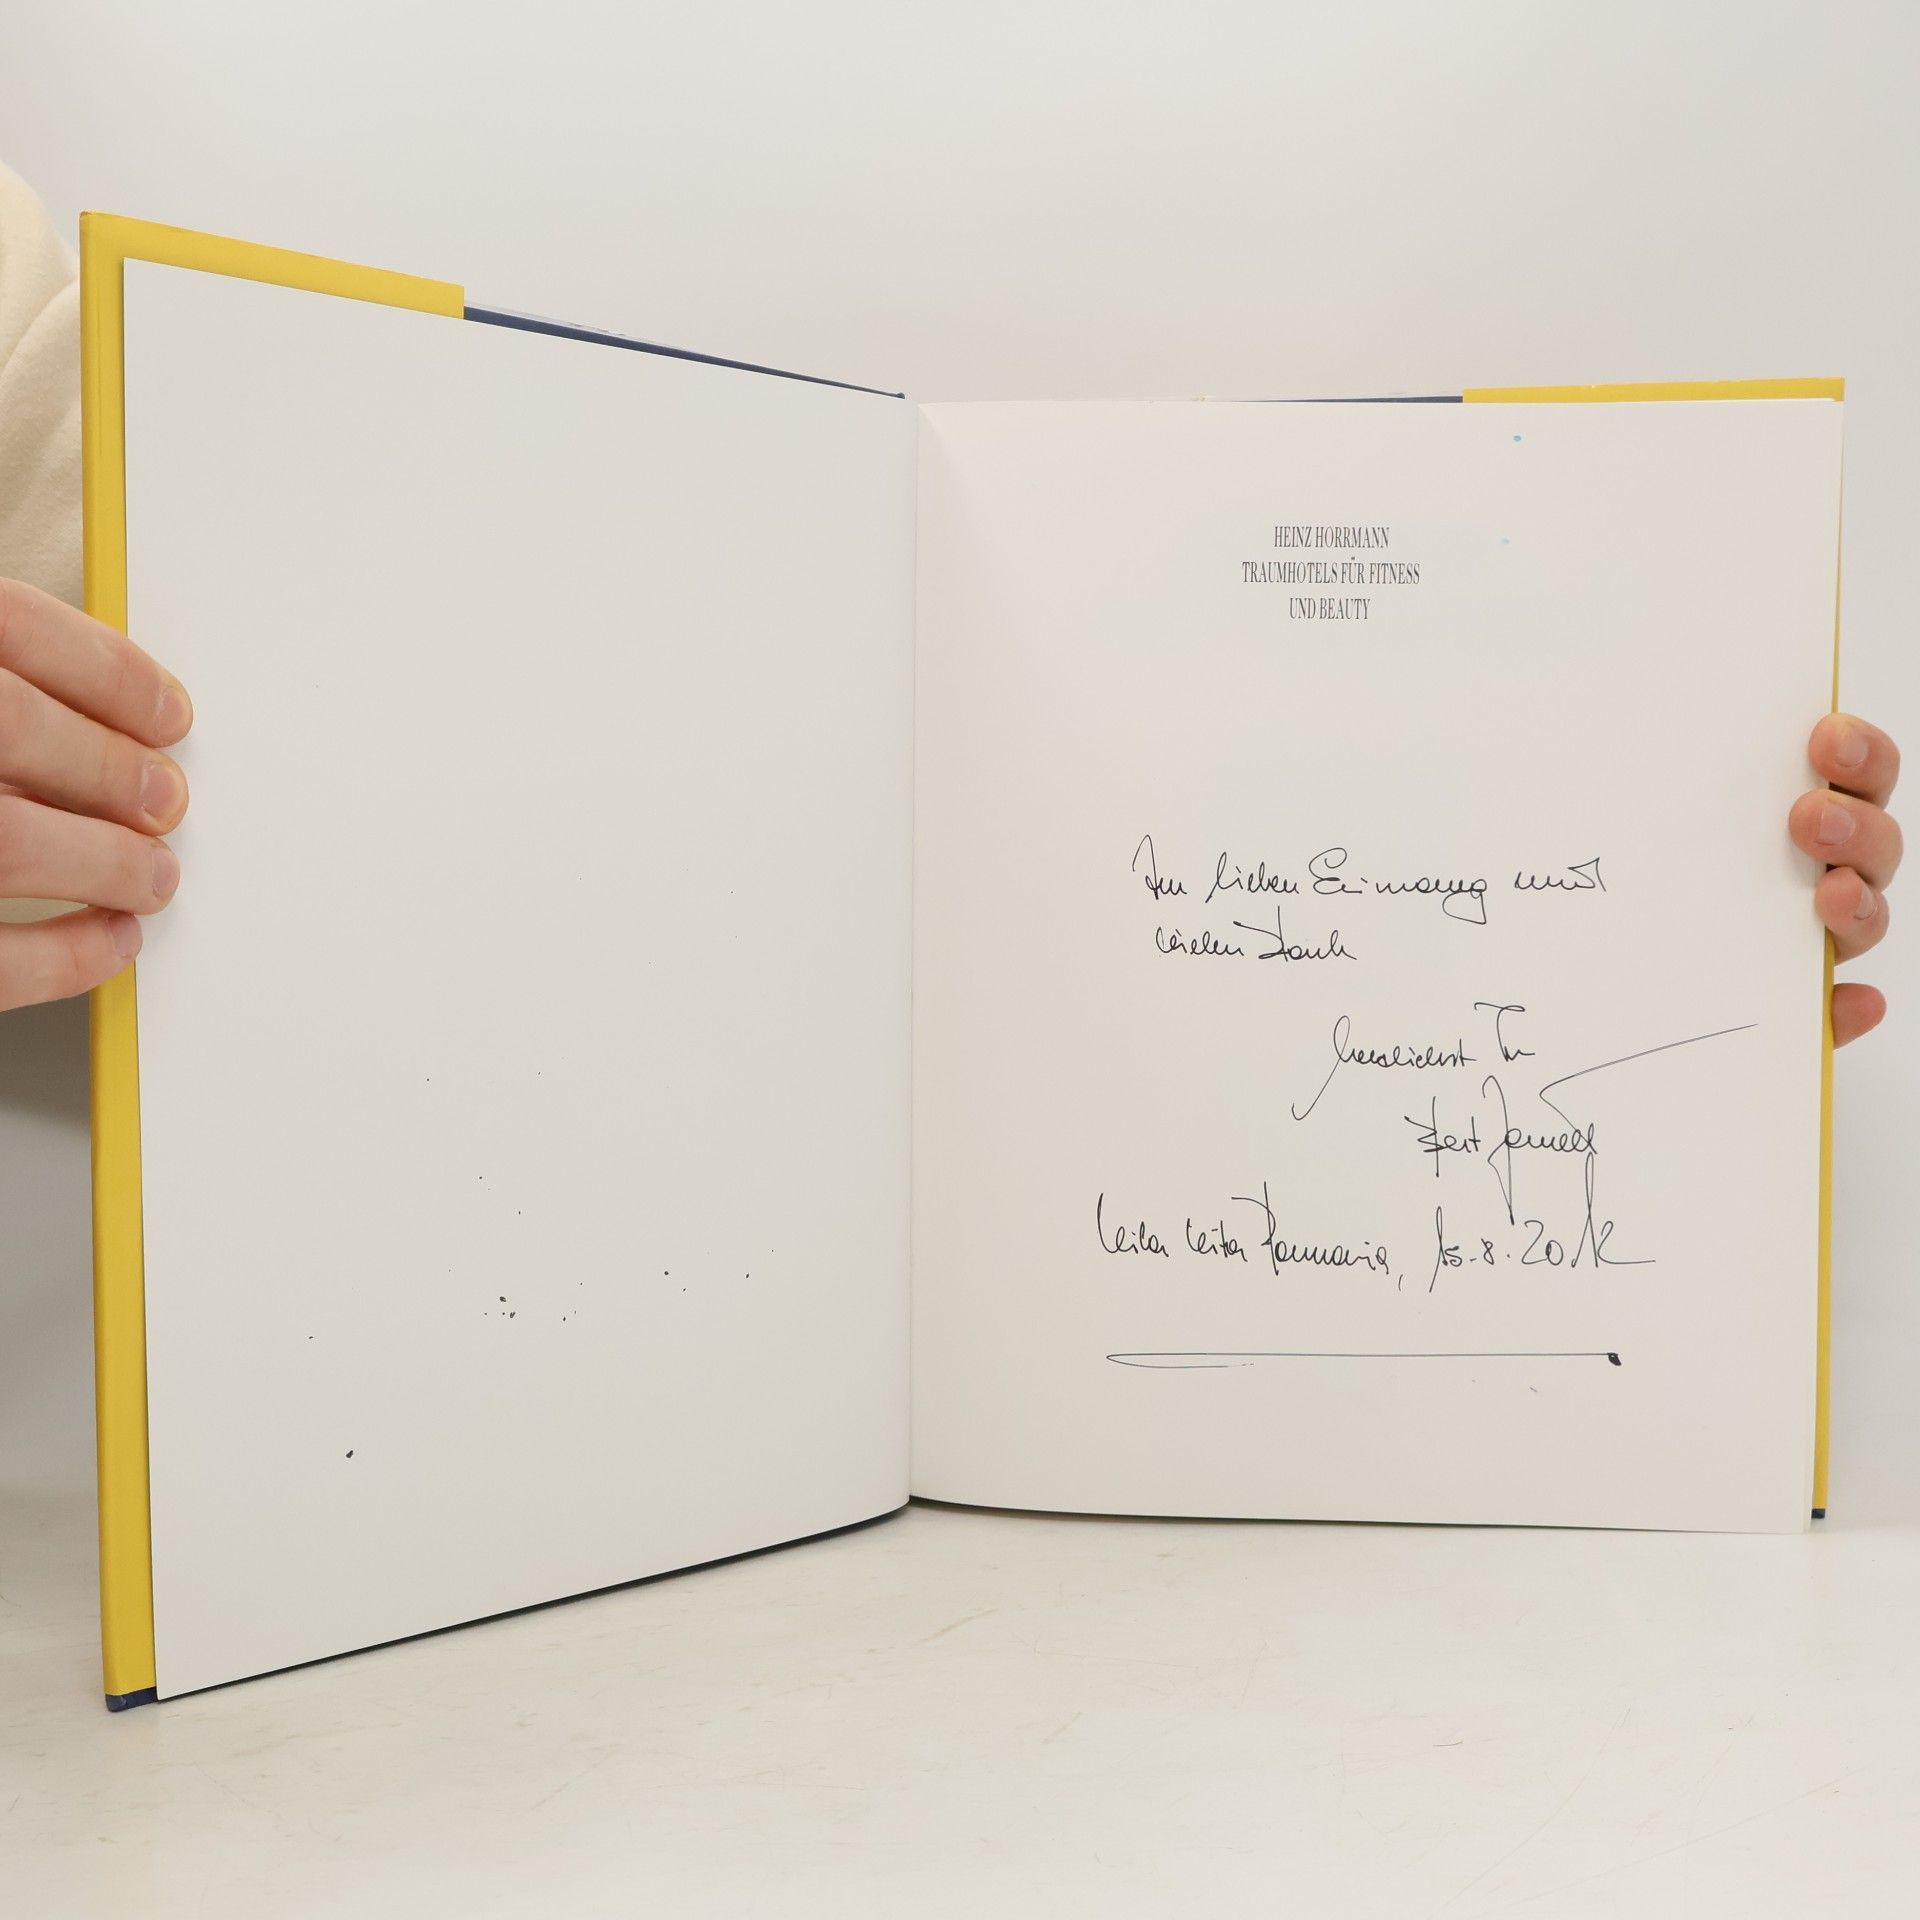 HEINZ HORRMANN
TRAUMHOTELS FÜR FITNESS
UND BEAUTY
Zur lieben Erinnerung und
vielen Dank
herzlichst Ihr
Bert
15.8.2012